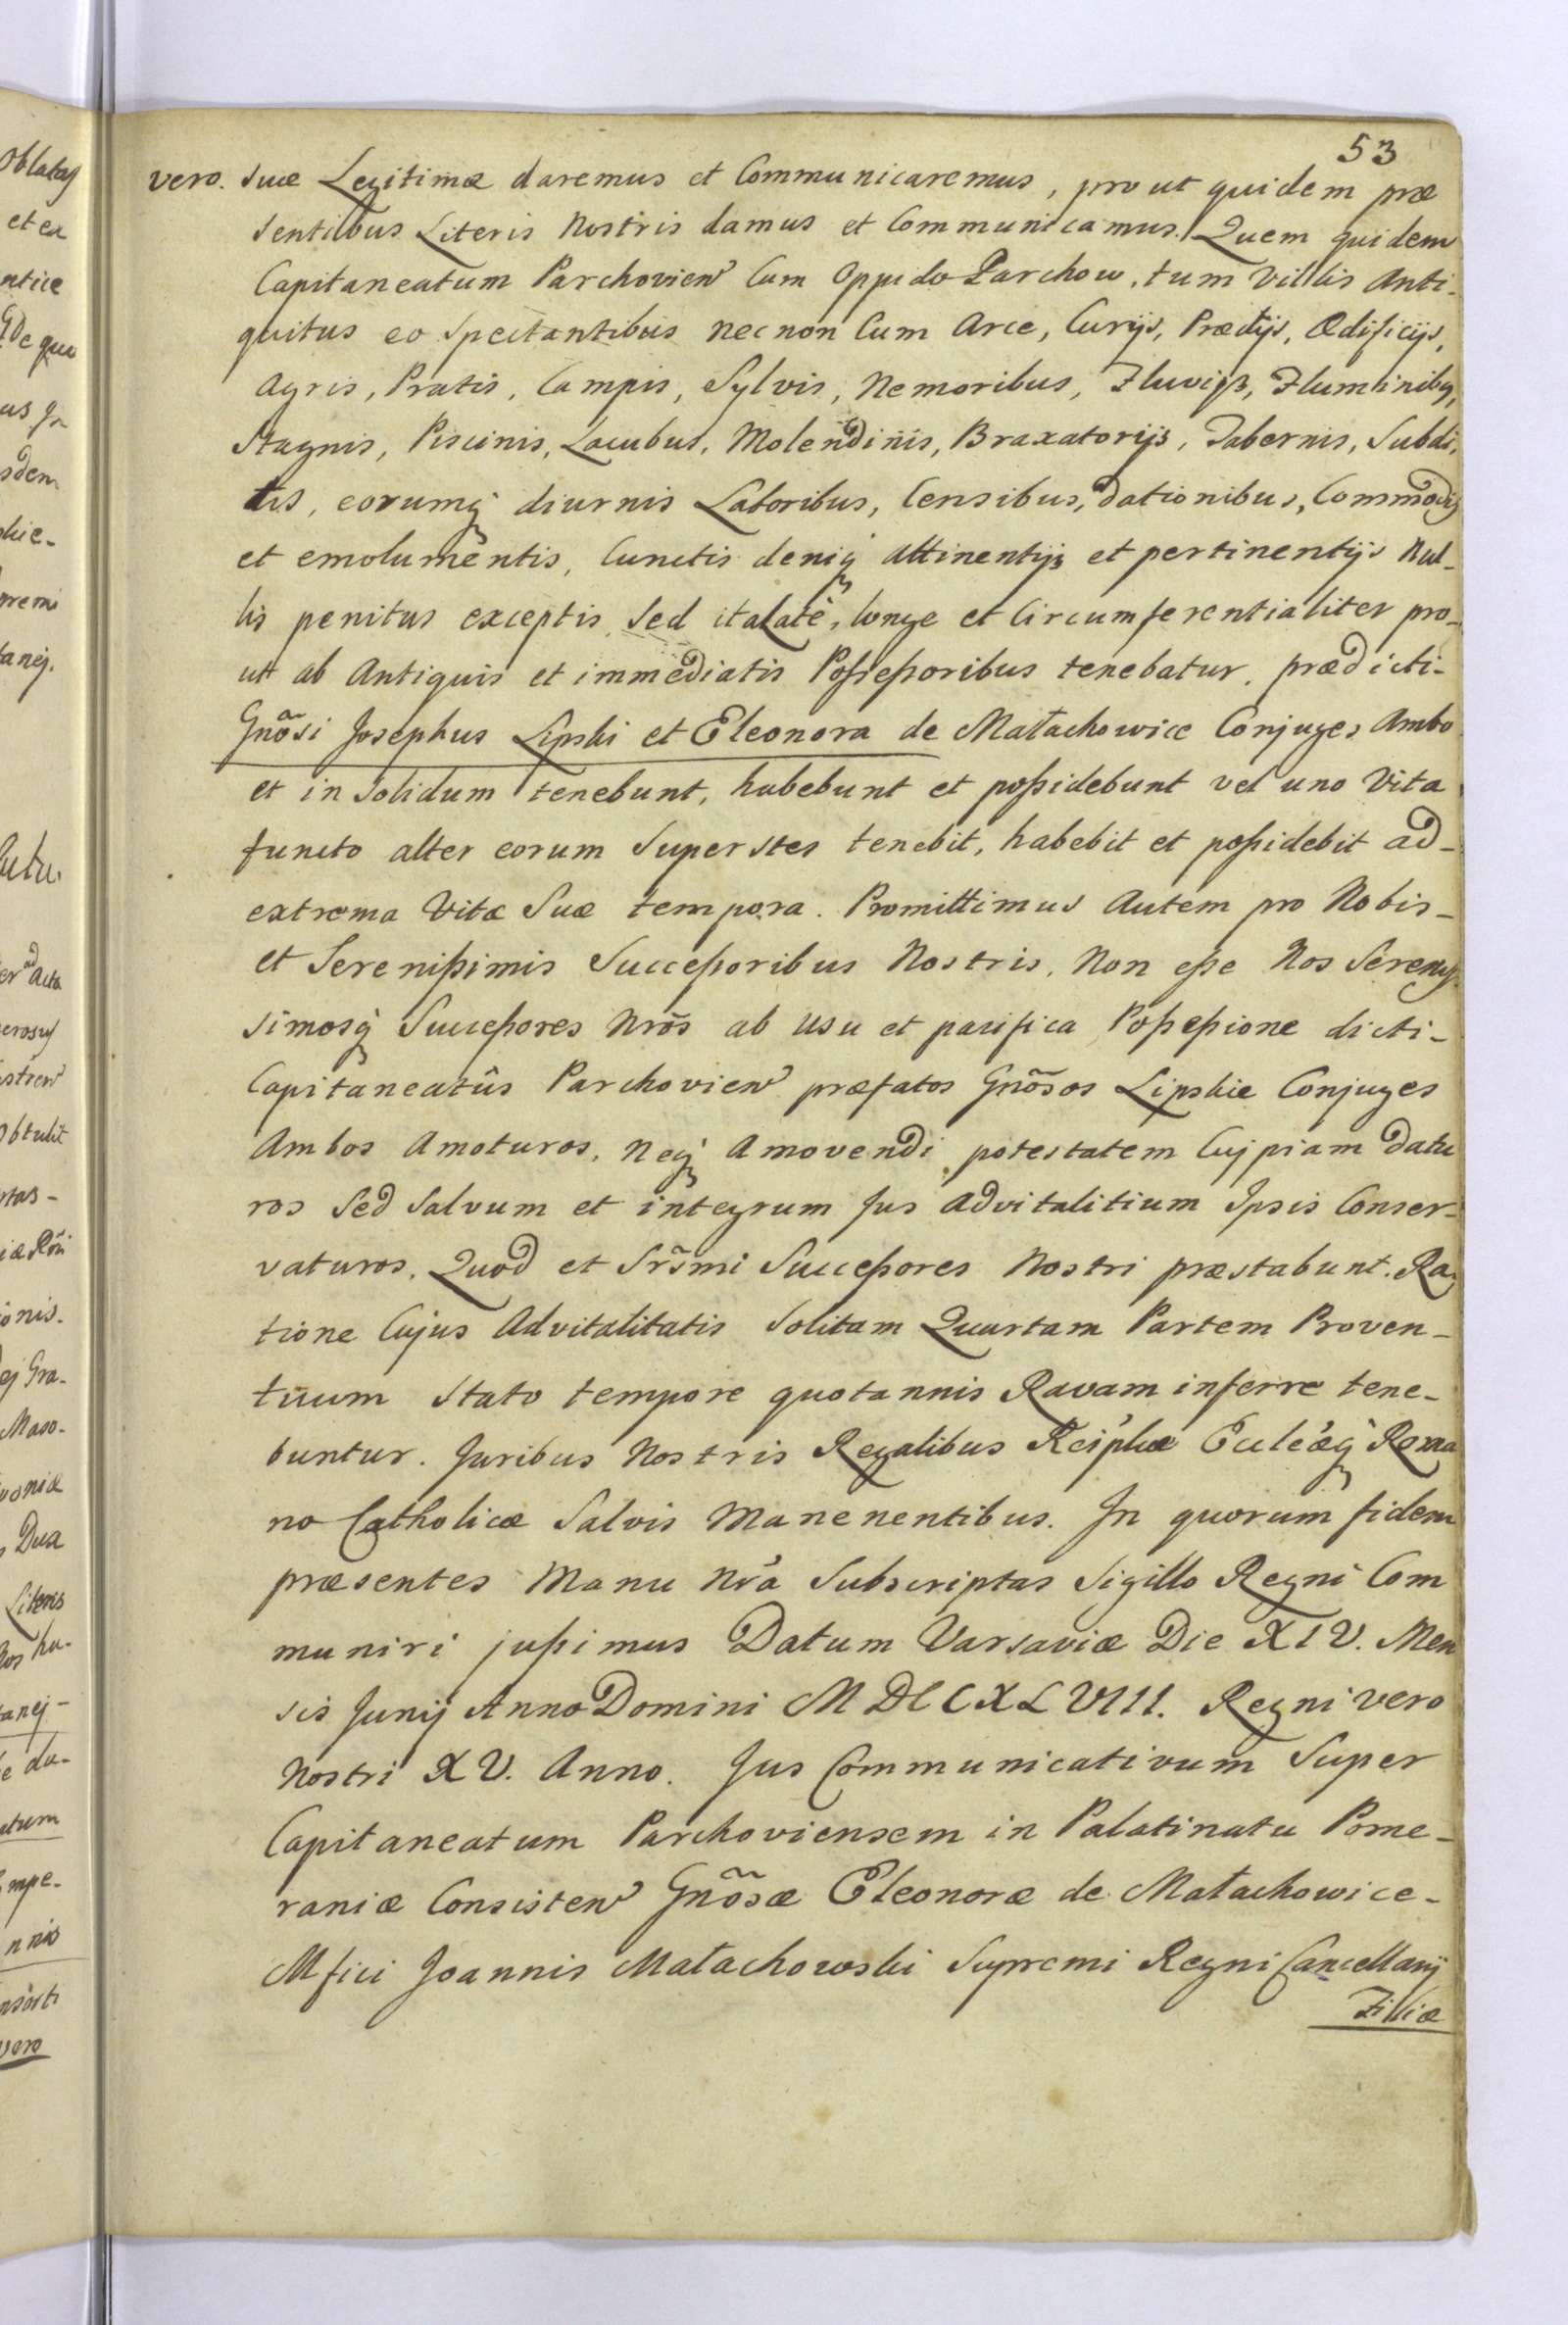 53
vero. suæ Legitimæ daremus et Communicaremus, prout quidem præ
sentibus Literis Nostris damus et Communicamus. Quem quidem
Capitaneatum Parchovien Cum Oppido Parchow, tum Villis Anti-
quitus eo spectantibus nec non Cum Arce, Curijs, Prædijs, Ædificijs,
Agris, Pratis, Campis, Sylvis, Nemoribus, Fluvijs, Fluminibq,
Stagnis, Piscinis, Lacubus, Molendinis, Braxatorijs, Tabernis, Subdi-
tis, eorumq diurnis Laboribus, Censibus, dationibus, Commodis
et emolumentis, Cunctis deniq attinentijs et pertinentijs Nul-
lis penitus exceptis, sed ita late, longe et Circumferentialiter pro-
ut ab Antiquis et immediatis Poßeßoribus tenebatur. prædicti-
Gnõsi Josephus Lipski et Eleonora de Małachowice Conjuges Ambo
et in solidum tenebunt, habebunt et poßidebunt vel uno Vita
functo alter eorum Superstes tenebit, habebit et poßidebit ad-
extrema Vitæ Suæ tempora. Promittimus Autem pro Nobis-
et Serenißimis Succeßoribus Nostris, Non eße Nos Sereniß
simosq Succeßores Nrõs ab usu et pacifica Poßeßione dicti-
Capitaneatûs Parchovien præfatos Gnõsos Lipskie Conjuges
Ambos Amoturos, Neq Amovendi potestatem Cujpiam datu
ros Sed Salvum et integrum Jus Advitalitium Ipsis Conser-
vaturos. Quod et Srs̃mi Succeßores Nostri præstabunt. Ra-
tione Cujus Advitalitatis Solitam Quartam Partem Proven-
tuum Stato tempore quotannis Ravam inferre tene-
buntur. Juribus Nostris Regalibus Reiplcæ Ecclẽæq Roma
no Catholicæ Salvis Manenentibus. In quorum fidem
præsentes Manu Nrã Subscriptas Sigillo Regni Com
muniri jußimus Datum Varsaviæ Die XIV. Men
sis Junij Anno Domini MDCCXLVIII. Regni vero
Nostri XV. Anno. Jus Communicativum Super
Capitaneatum Parchoviensem in Palatinatu Pome-
raniæ Consisten Gnõsæ Eleonoræ de Małachowice-
Mfici Joannis Małachowski Supremi Regni Cancellarij
Filiæ